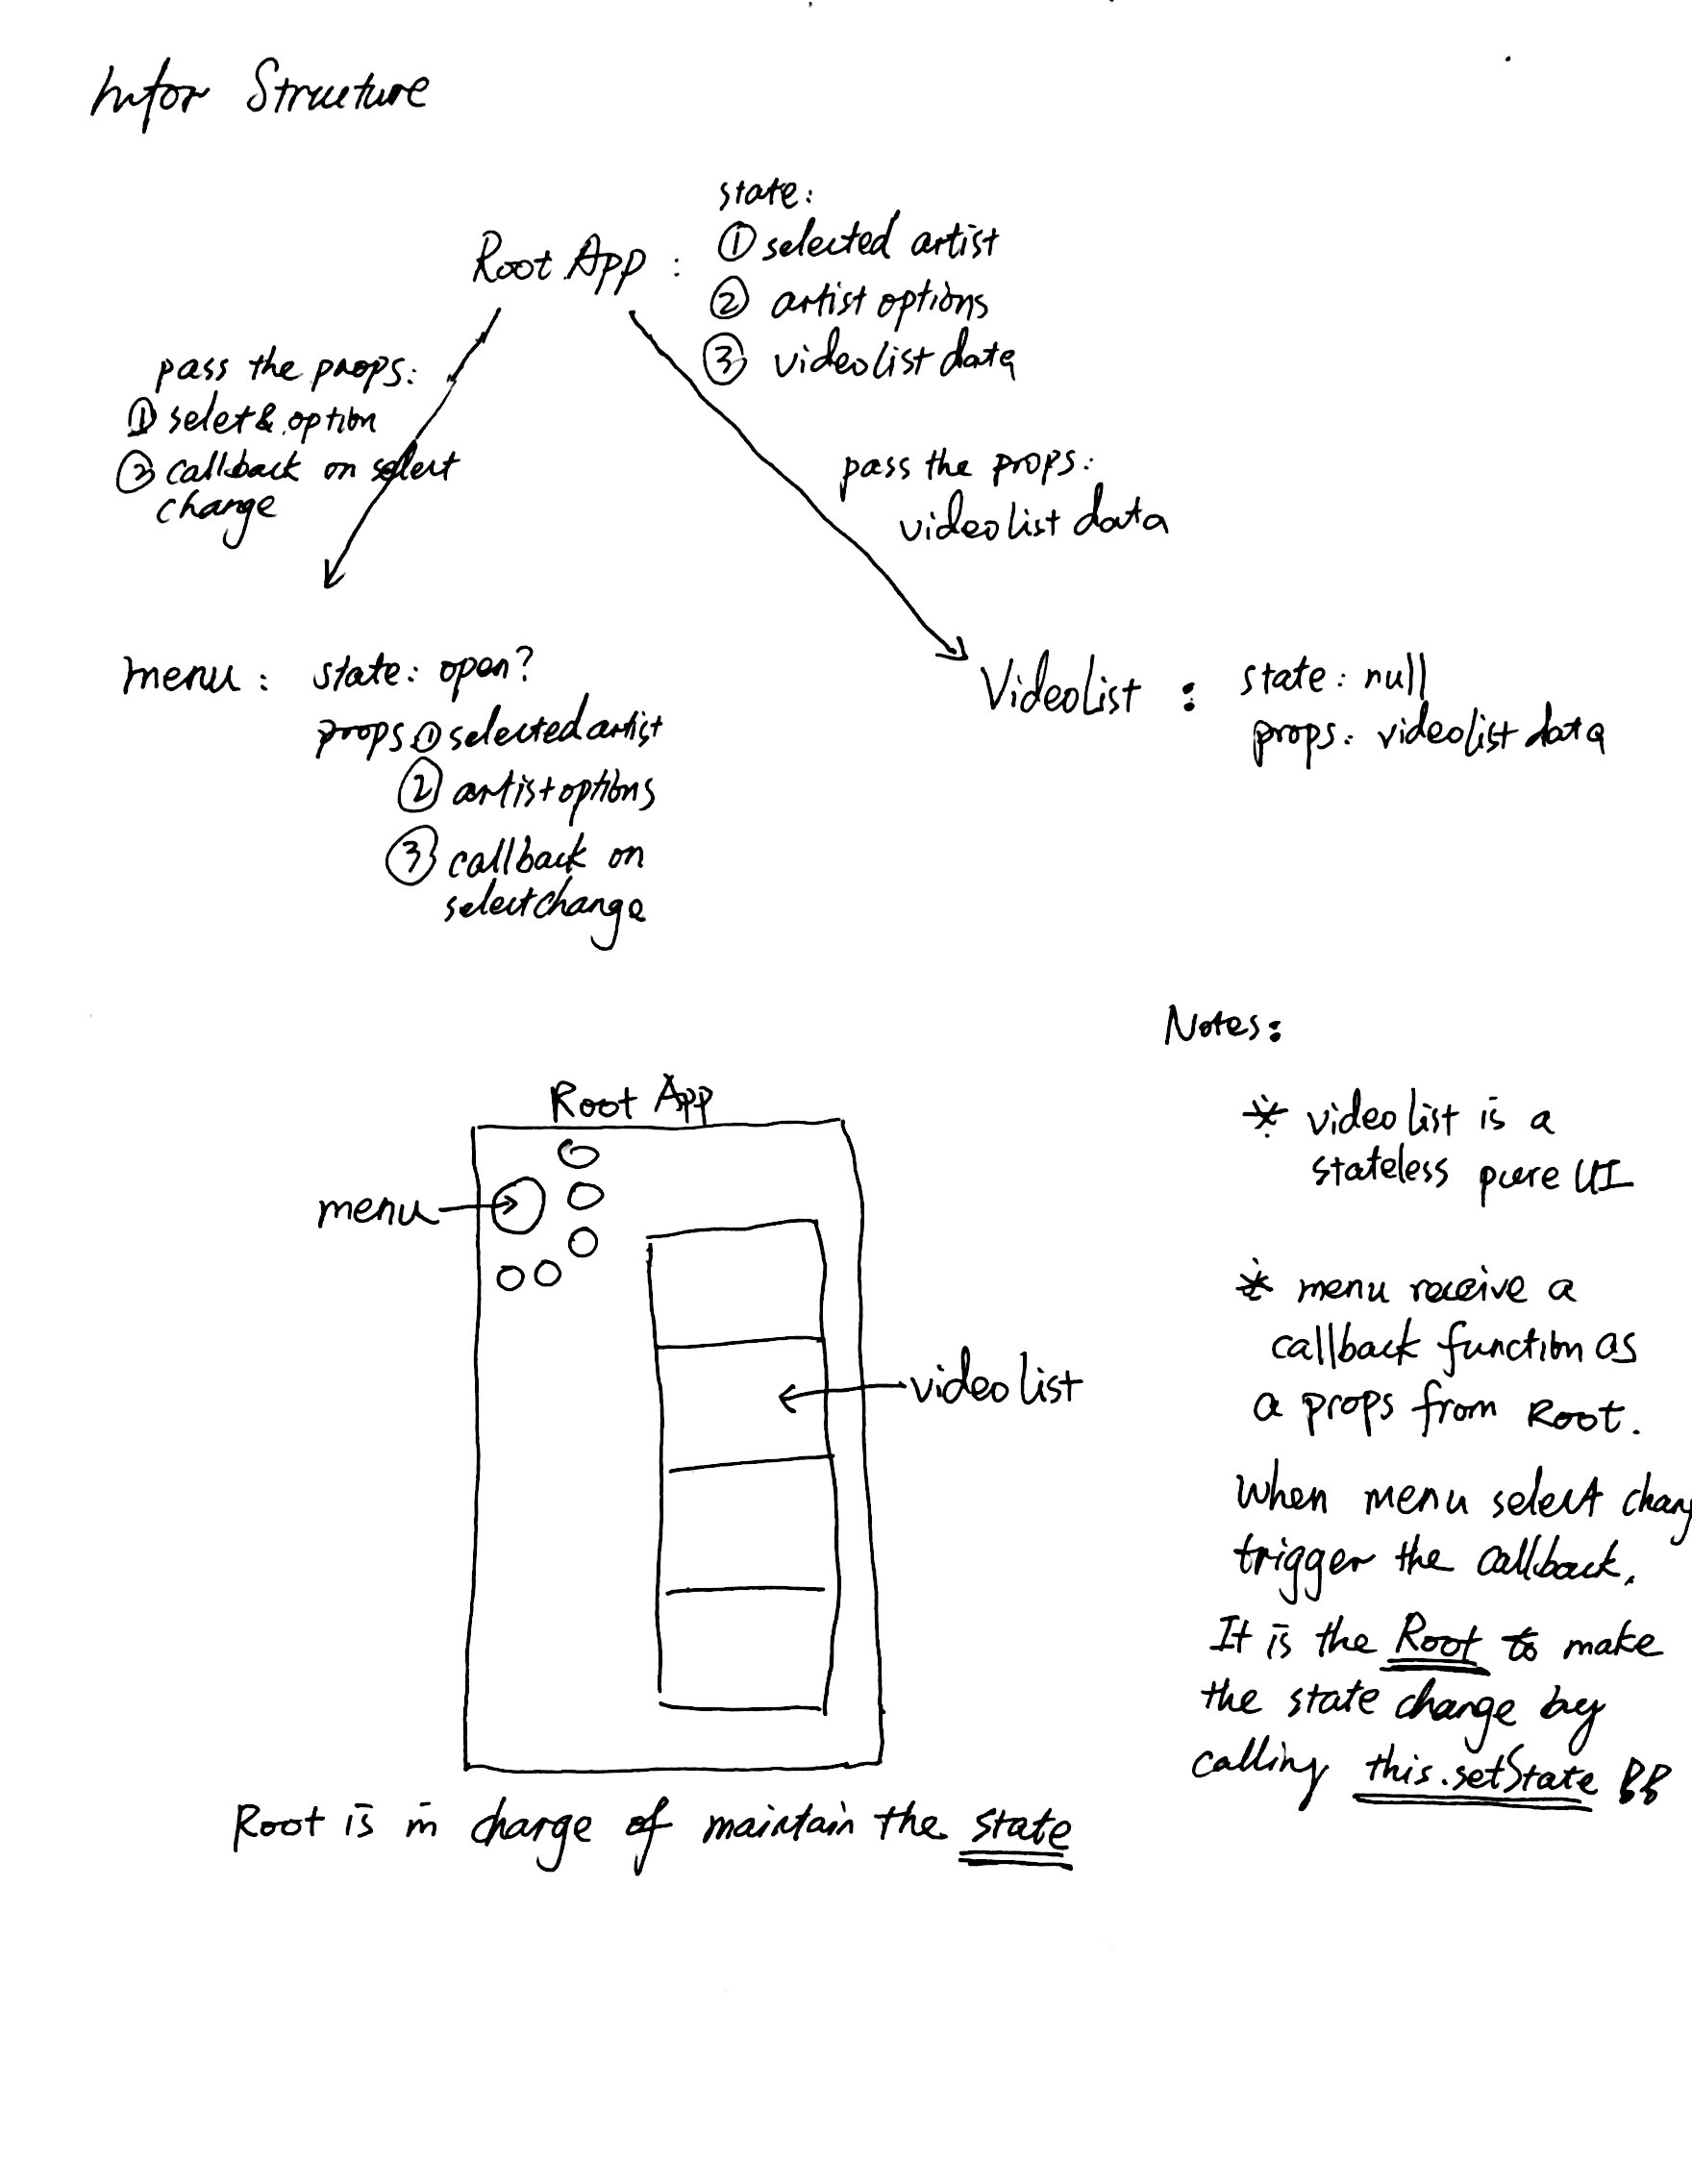 Infor Structure
state:
Root App :
① selected artist
② artist options
③ videolist data
pass the props:
① selet & option
② callback on select
change
pass the props:
videolist data
menu : state: open?
props ① selected artist
② artist options
③ callback on
select change
Videolist : state: null
props: videolist data
Root App
menu
videolist
Root is in charge of maintain the state
Notes:
* videolist is a
stateless pure UI
* menu receive a
callback function as
a props from Root.
When menu select chang
trigger the callback.
It is the Root to make
the state change by
calling this.setState